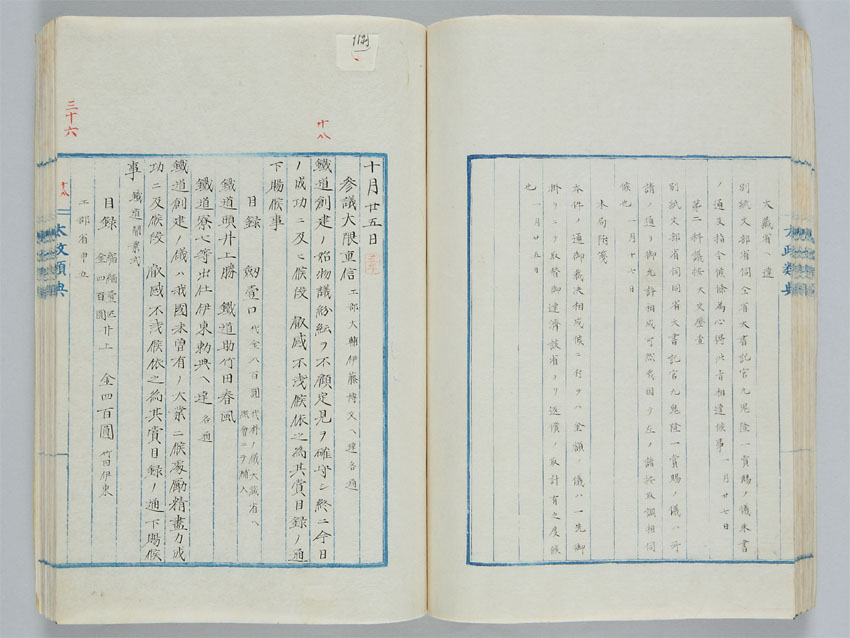 大蔵省ヘ達
別紙文部省伺同省大書記官九鬼隆一賞賜ノ儀朱書
ノ通及指令候條為心得此旨相達候事 一月廿七日
第二科議按 大文歴査
別紙文部省伺同省大書記官九鬼隆一賞賜ノ儀ハ
請ノ通リ御允許相成可然哉因テ左ノ諸按取調相伺
候也 一月十七日
本局附箋
本件ノ通御裁決相成候ニ付テハ金額ノ儀ハ一先御
掛リニテ取替御達済該省ヨリ返償ノ取計有之度候
也 一月廿五日
太政類典
1123
三十六
十八
十月廿五日
参議大隈重信 工部大輔伊藤博文ヘ達各通
鐵道創建ノ始物議紛紜ヲ不顧定見ヲ確守シ終ニ今日
ノ成功ニ及ヒ候段 叡感不淺候依之為其賞目録ノ通
下賜候事
目録 劔壹口 代金八百圓
鐵道頭井上勝 鐵道助竹田春風
鐵道寮七等出仕伊東勅典ヘ達 各通
鐵道創建ノ儀ハ我國未曽有ノ大業ニ候處勵精盡力成
功ニ及候段 叡感不淺候依之為其賞目録ノ通下賜候
事 鐵道開業式
目録 金四百圓 井上 金四百圓 竹田伊東
工部省申立
十八
太政類典